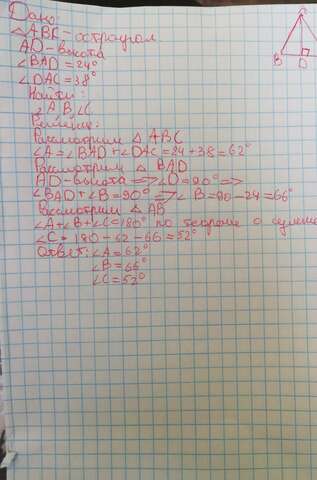 Дано:
△ABC - остроугол.
AD - высота
∠BAD = 24°
∠DAC = 38°
Найти:
∠A, B, ∠C
Решение:
Рассмотрим △ ABC
∠A = ∠BAD + ∠DAC = 24 + 38 = 62°
Рассмотрим △ BAD
AD - высота => ∠D = 90° =>
∠BAD + ∠B = 90° => ∠B = 90 - 24 = 66°
Рассмотрим △ AB
∠A + ∠B + ∠C = 180° по теореме о сумме
∠C = 180 - 62 - 66 = 52°
Ответ: ∠A = 62°
∠B = 66°
∠C = 52°
B D